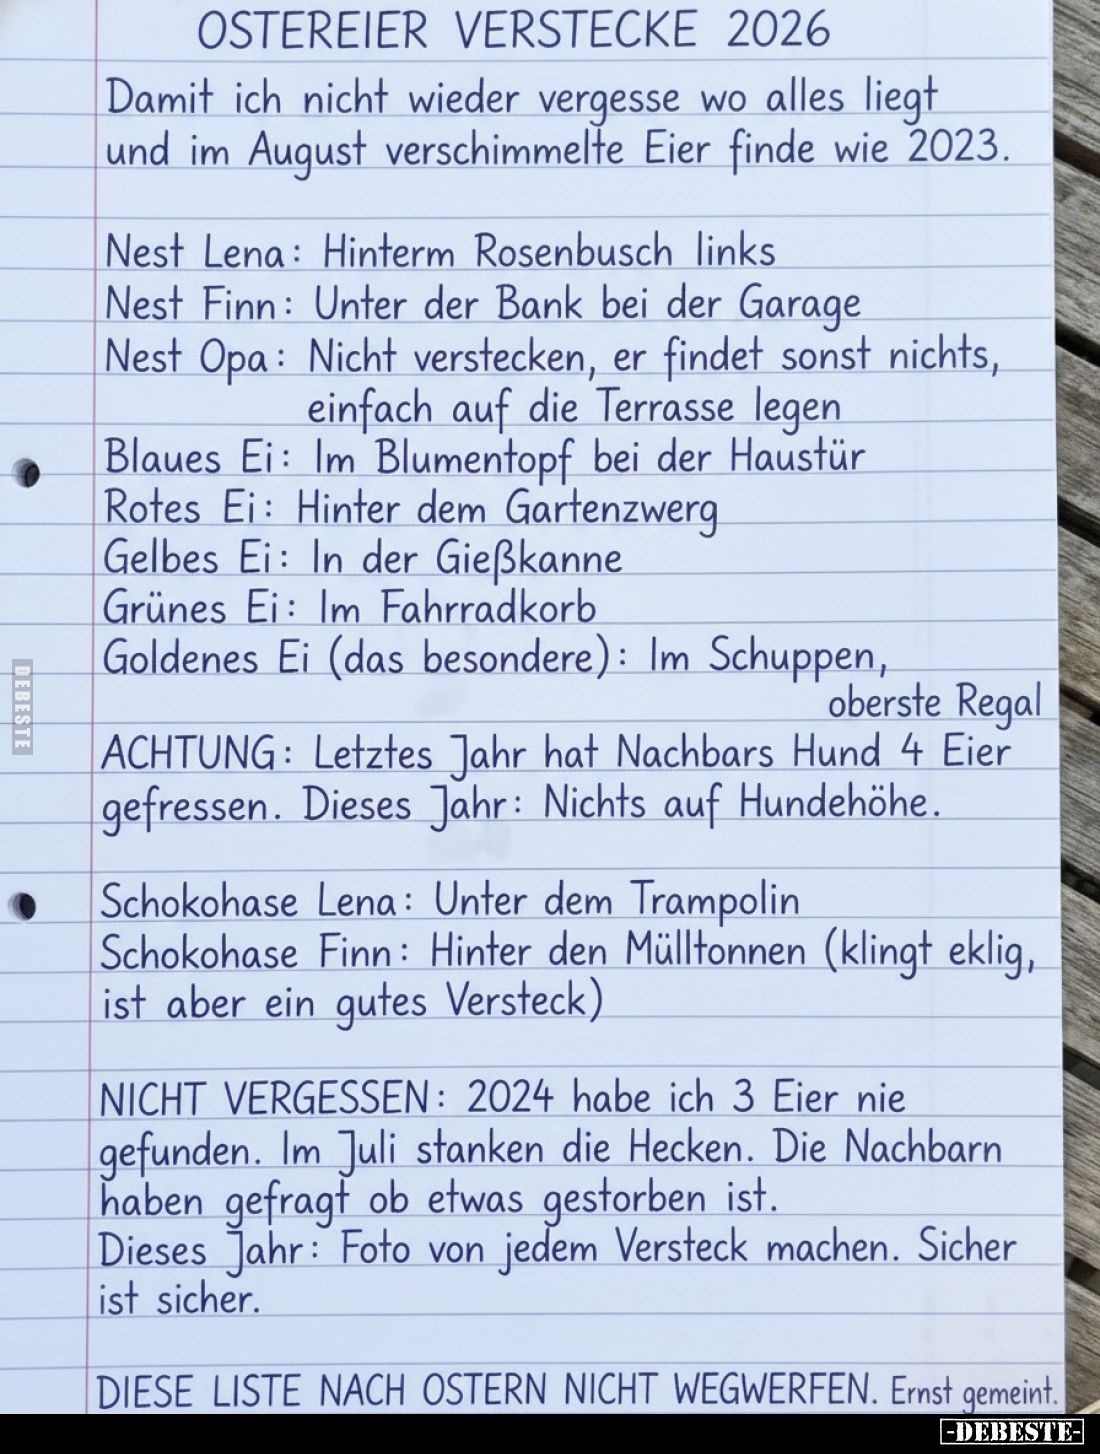 OSTEREIER VERSTECKE 2026
Damit ich nicht wieder vergesse wo alles liegt
und im August verschimmelte Eier finde wie 2023.
Nest Lena: Hinterm Rosenbusch links
Nest Finn: Unter der Bank bei der Garage
Nest Opa: Nicht verstecken, er findet sonst nichts,
einfach auf die Terrasse legen
Blaues Ei: Im Blumentopf bei der Haustür
Rotes Ei: Hinter dem Gartenzwerg
Gelbes Ei: In der Gießkanne
Grünes Ei: Im Fahrradkorb
Goldenes Ei (das besondere): Im Schuppen,
oberste Regal
ACHTUNG: Letztes Jahr hat Nachbars Hund 4 Eier
gefressen. Dieses Jahr: Nichts auf Hundehöhe.
Schokohase Lena: Unter dem Trampolin
Schokohase Finn: Hinter den Mülltonnen (klingt eklig,
ist aber ein gutes Versteck)
NICHT VERGESSEN: 2024 habe ich 3 Eier nie
gefunden. Im Juli stanken die Hecken. Die Nachbarn
haben gefragt ob etwas gestorben ist.
Dieses Jahr: Foto von jedem Versteck machen. Sicher
ist sicher.
DIESE LISTE NACH OSTERN NICHT WEGWERFEN. Ernst gemeint.
DEBESTE
-DEBESTE-